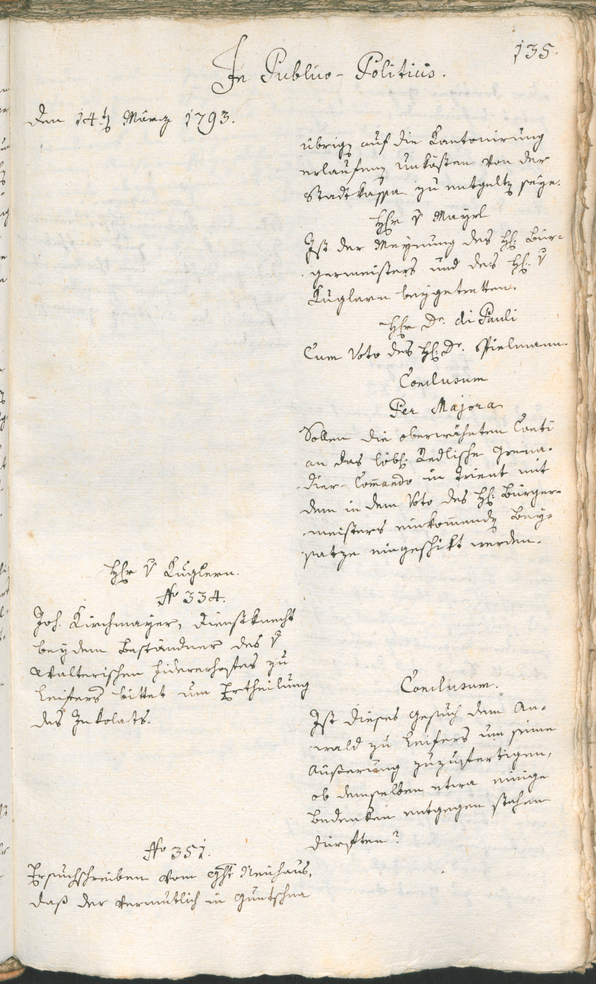 135.
In Publico-Politicis.
Den 14t März 1793.
übrig auf die Cantonirung
erlaufene Unkösten von der
Stadtkassa zu entgelten seye.
Hr v Mayrl
Ist der Meynung des H: Bur-
germeisters und des H: v
Kuglern beygetretten.
Hr Dr. di Pauli
Cum Voto des H: Dr. Spielmann.
Conclusum
Per Majora
Sollen die oberwähnten Conti
an das löbl: Grena-
dier-Comando in Trient mit
dem in dem Voto des H: Burger-
meisters einkommenden Bey-
satze eingeschikt werden.
Hr v Kuglern.
No 334.
Joh. Kirchmayer, Dienstknecht
bey dem Beständner des v
Walterischen hofes zu
Leifers bittet um Ertheilung
des Inkolats.
Conclusum.
Ist dieses Gesuch dem An-
wald zu Leifers um seine
Äußerung zuzufertigen,
ob demselben etwa einige
Bedenken entgegen stehen
dürften?
No 351.
Ersuchschreiben vom Neuhaus,
daß der vermutlich in Guntschna